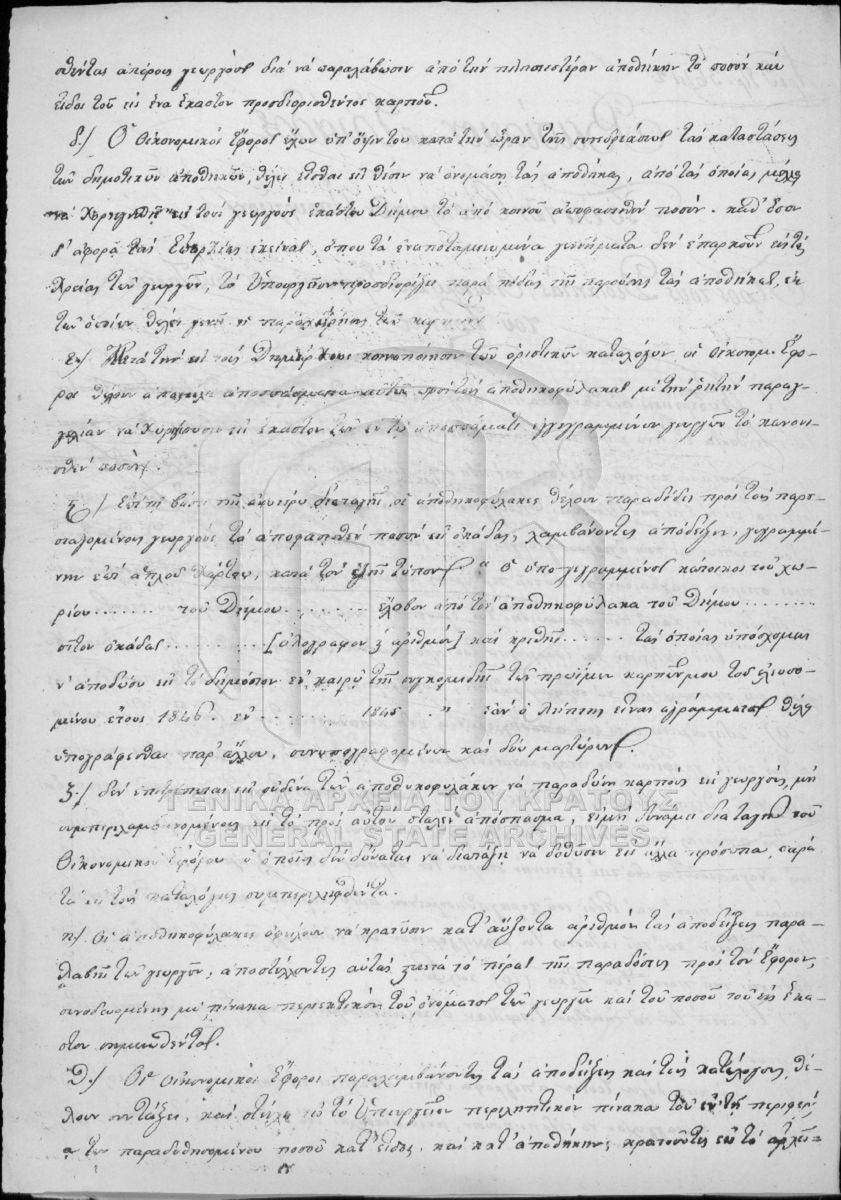 σθέντας ἀπόρους γεωργοὺς διὰ νὰ παραλάβωσιν ἀπὸ τὴν πλησιεστέραν ἀποθήκην τὸ ποσὸν καὶ
εἶδος τοῦ εἰς ἕνα ἕκαστον προσδιορισθέντος καρποῦ.
δ.) Ὁ Οἰκονομικὸς Ἔφορος ἔχων ὑπ' ὄψιν του κατὰ τὴν ὥραν τῆς συνεδριάσεως τὰς καταστάσεις
τῶν δημοτικῶν ἀποθηκῶν, θέλει εἶσθαι εἰς θέσιν νὰ ὀνομάσῃ τὰς ἀποθήκας, ἀπὸ τὰς ὁποίας μέλλει
νὰ χορηγηθῇ εἰς τοὺς γεωργοὺς ἑκάστου Δήμου τὸ ἀπὸ κοινοῦ ἀποφασισθὲν ποσόν. καθ' ὅσον
δ' ἀφορᾷ τὰς Ἐπαρχίας ἐκείνας, ὅπου τὰ ἐναποταμιευμένα γεννήματα δὲν ἐπαρκοῦν εἰς τὰς
χρείας τῶν γεωργῶν, τὸ Ὑπουργεῖον προσδιορίζει παρὰ πόδας τῆς παρούσης τὰς ἀποθήκας, ἐκ
τῶν ὁποίων θέλει γένει ἡ παραχώρησις τῶν καρπῶν
ε.) Μετὰ τὴν εἰς τοὺς Δημάρχους κοινοποίησιν τῶν ὁριστικῶν καταλόγων οἱ Οἰκονομ. Ἔφο-
ροι θέλουν ἀποστείλει ἀποσπάσματα αὐτῶν πρὸς τοὺς ἀποθηκοφύλακας μὲ τὴν ῥητὴν παραγ-
γελίαν νὰ χορηγήσουν εἰς ἕκαστον τῶν ἐν τῷ ἀποσπάσματι ἐγγεγραμμένων γεωργῶν τὸ κανονι-
σθὲν ποσόν.
ς.) Ἐπὶ τῇ βάσει τῆς ἀνωτέρω διαταγῆς, οἱ ἀποθηκοφύλακες θέλουν παραδίδει πρὸς τοὺς παρου-
σιαζομένους γεωργοὺς τὸ ἀποφασισθὲν ποσὸν εἰς ὀκάδας, λαμβάνοντες ἀπόδειξιν, γεγραμμέ-
νην ἐπὶ ἁπλοῦ χάρτου, κατὰ τὸν ἑξῆς τύπον. « Ὁ ὑπογεγραμμένος κάτοικος τοῦ χω-
ρίου........ τοῦ Δήμου......... ἔλαβον ἀπὸ τὸν ἀποθηκοφύλακα τοῦ Δήμου.........
σῖτον ὀκάδας.......... [ὁλογράφον ἀριθμὸν] καὶ κριθῆς....... τὰς ὁποίας ὑπόσχομαι
ν' ἀποδώσω εἰς τὸ δημόσιον ἐν καιρῷ τῆς συγκομιδῆς τῶν πρωΐμων καρπῶν μου τοῦ ἐλευσο-
μένου ἔτους 1846. ἐν.......... 1845 » ἐὰν ὁ λήπτης εἶναι ἀγράμματος θέλει
ὑπογράφεσθαι παρ' ἄλλου, συνυπογραφομένων καὶ δύο μαρτύρων.
ζ.) Δὲν ἐπιτρέπεται εἰς οὐδένα τῶν ἀποθηκοφυλάκων νὰ παραδώσῃ καρποὺς εἰς γεωργούς, μὴ
συμπεριλαμβανομένους εἰς τὸ πρὸς αὐτὸν σταλὲν ἀπόσπασμα, εἰμὴ δυνάμει διαταγῆς τοῦ
Οἰκονομικοῦ Ἐφόρου ὁ ὁποῖος δὲν δύναται νὰ διατάξῃ νὰ δοθῶσιν εἰς ἄλλα πρόσωπα, παρὰ
τὰ εἰς τοὺς καταλόγους συμπεριληφθέντα.
η.) Οἱ ἀποθηκοφύλακες ὀφείλουν νὰ κρατῶσιν κατ' αὔξοντα ἀριθμὸν τὰς ἀποδείξεις παρα-
λαβῆς τῶν γεωργῶν, ἀποστέλλοντες αὐτὰς μετὰ τὸ πέρας τῆς παραδόσεως πρὸς τὸν Ἔφορον,
συνοδευομένας μὲ πίνακα περιεκτικὸν τοῦ ὀνόματος τῶν γεωργῶν καὶ τοῦ ποσοῦ τοῦ εἰς ἕκα-
στον σημειωθέντος.
θ.) Οἱ Οἰκονομικοὶ Ἔφοροι παραλαμβάνοντες τὰς ἀποδείξεις καὶ τοὺς καταλόγους, θέ-
λουν συντάξει, καὶ στείλει εἰς τὸ Ὑπουργεῖον περιληπτικὸν πίνακα τοῦ ἐν τῇ περιφερεί-
ᾳ των παραδοθησομένου ποσοῦ κατ' εἶδος, καὶ κατ' ἀποθήκην, κρατοῦντες εἰς τὸ ἀρχεῖ-
ΓΕΝΙΚΑ ΑΡΧΕΙΑ ΤΟΥ ΚΡΑΤΟΥΣ
GENERAL STATE ARCHIVES